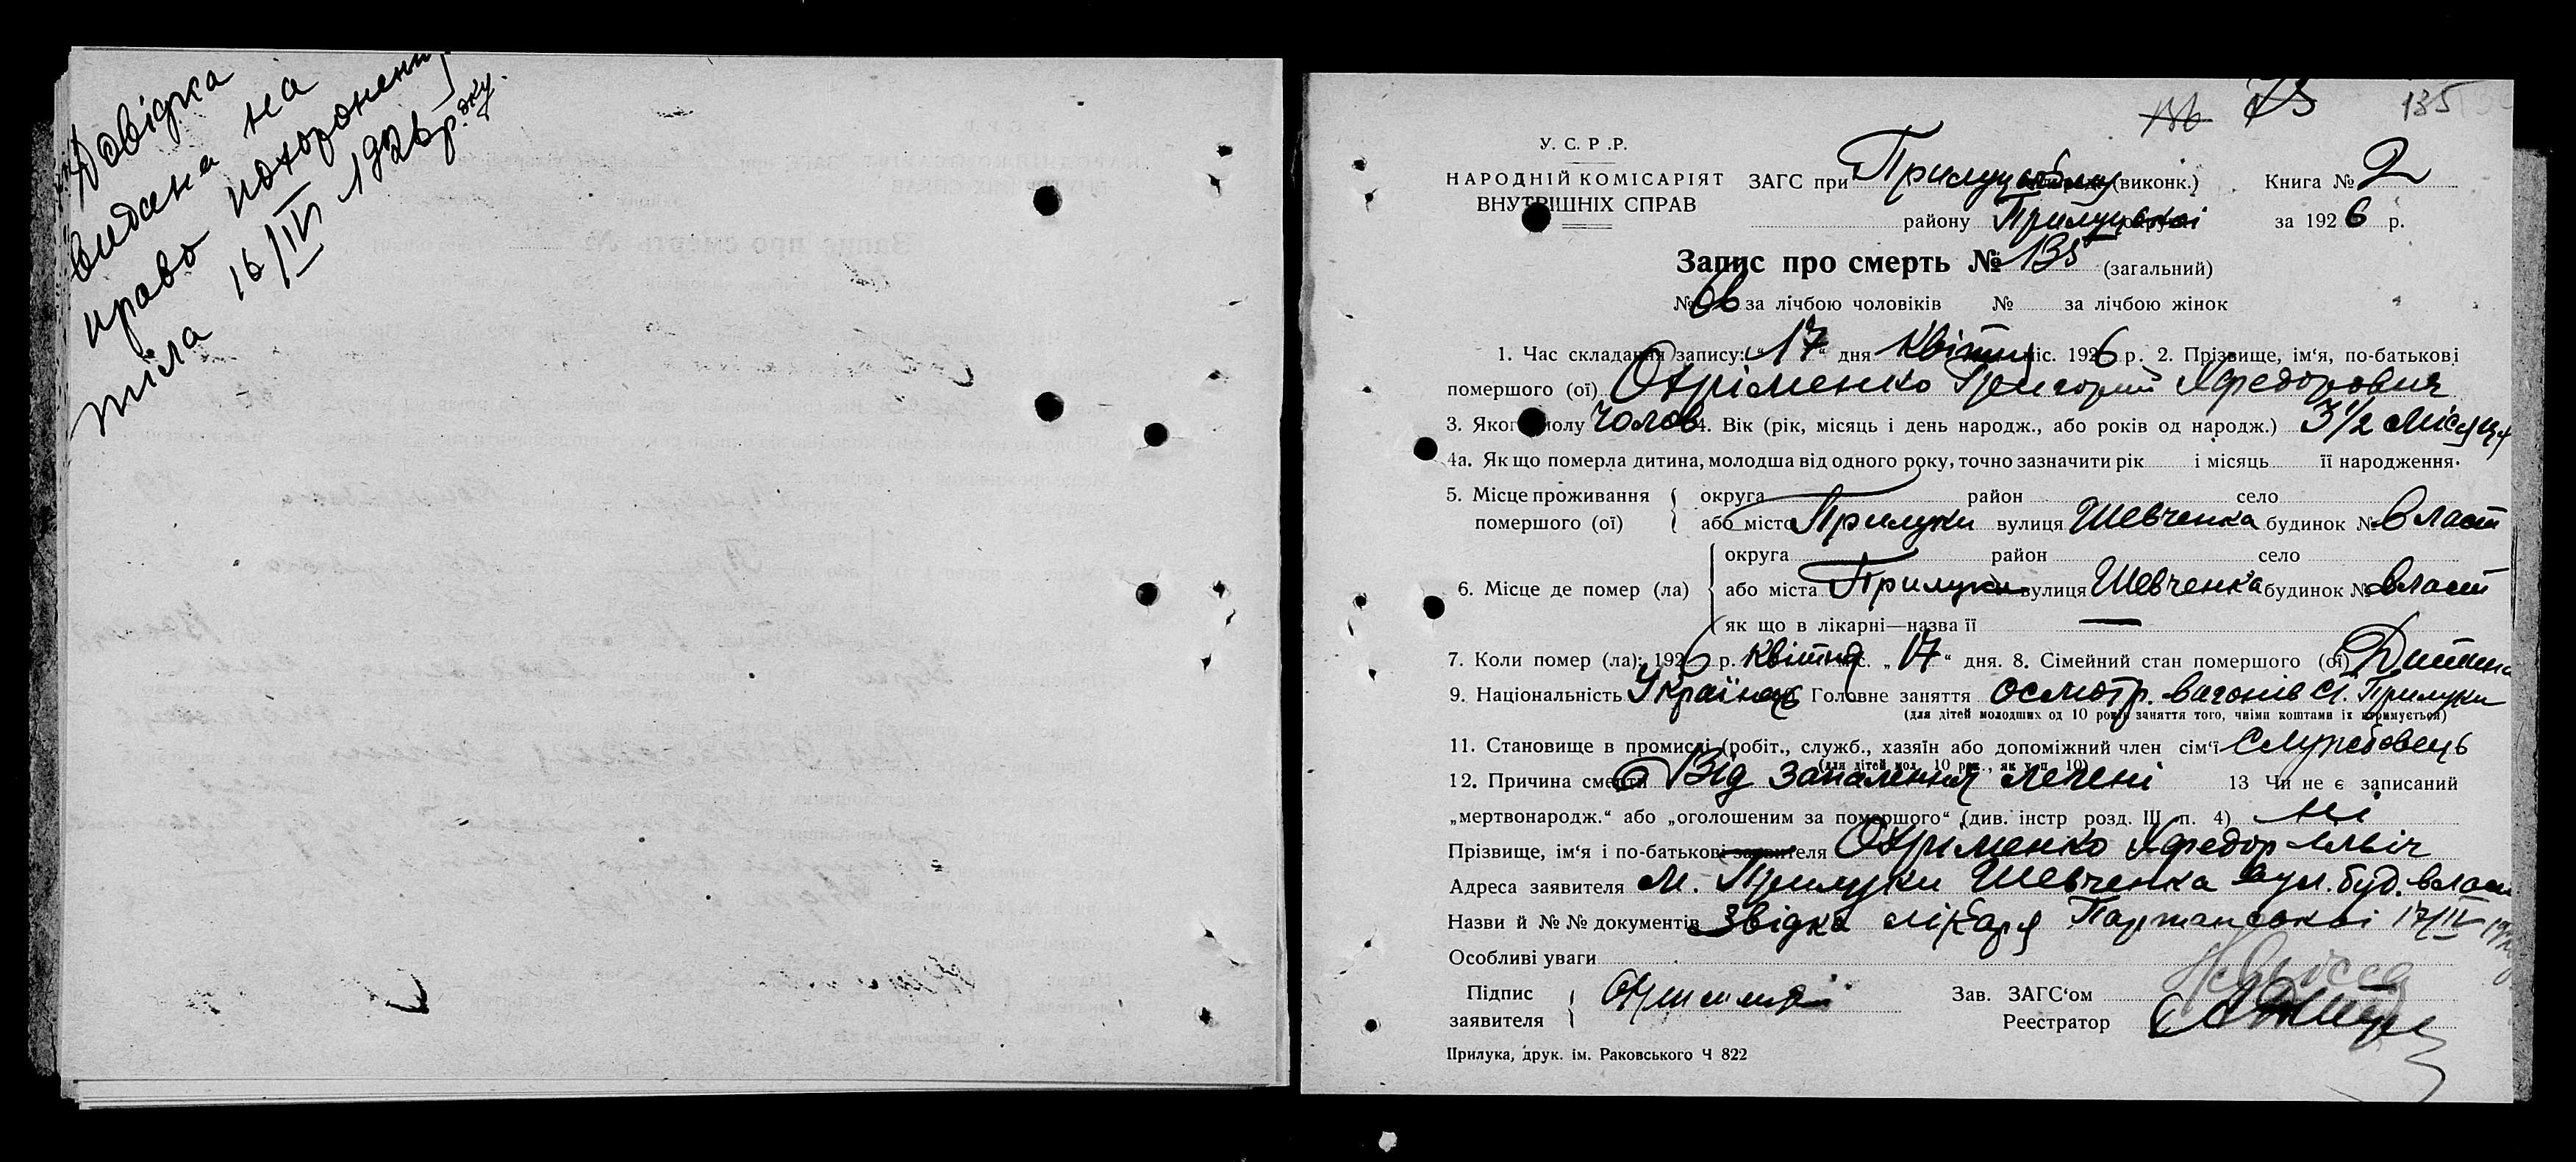 Довідка
видана на
право похоронення
тіла 16/IV 1926 р.
135
У. С. Р. Р.
НАРОДНІЙ КОМІСАРІЯТ
ВНУТРІШНІХ СПРАВ
ЗАГС при Прилуцькому (виконк.) Книга № 2
району Прилуцької округи за 1926 р.
Запис про смерть № 135 (загальний)
№ 66 за лічбою чоловіків № за лічбою жінок
1. Час складання запису: „17“ дня Квітня міс. 1926 р. 2. Прізвище, ім‘я, по-батькові
помершого (ої) Охріменко Григорий Хфедорович
3. Якого полу Чолов 4. Вік (рік, місяць і день народж., або років од народж.) 3 1/2 місяця
4а. Як що померла дитина, молодша від одного року, точно зазначити рік і місяць її народження.
5. Місце проживання помершого (ої) округа район село
або місто Прилуки вулиця Шевченка будинок № власт
6. Місце де помер (ла) округа район село
або міста Прилуки вулиця Шевченка будинок № власт
як що в лікарні—назва її —
7. Коли помер (ла): 1926 р. Квітня міс. „17“ дня. 8. Сімейний стан помершого (ої) Дитина
9. Національність Українець Головне заняття осмотр. вагонів ст. Прилуки
(для дітей молодших од 10 років заняття того, чиїми коштами їх утримується)
11. Становище в промислі (робіт., служб., хазяїн або допоміжний член сім‘ї Службовець
(для дітей мол. 10 рок., як у п. 10)
12. Причина смерти Від запалення легені 13 Чи не є записаний
„мертвонародж.“ або „оголошеним за помершого“ (див. інстр розд. III п. 4) ні
Прізвище, ім‘я і по-батькові заявителя Охріменко Хфедор
Адреса заявителя м. Прилуки Шевченка вул. буд. власт
Назви й № № документів Звідка лікаря 17/IV
Особливі уваги
Підпис заявителя
Зав. ЗАГС‘ом
Реестратор
Прилука, друк. ім. Раковського Ч 822